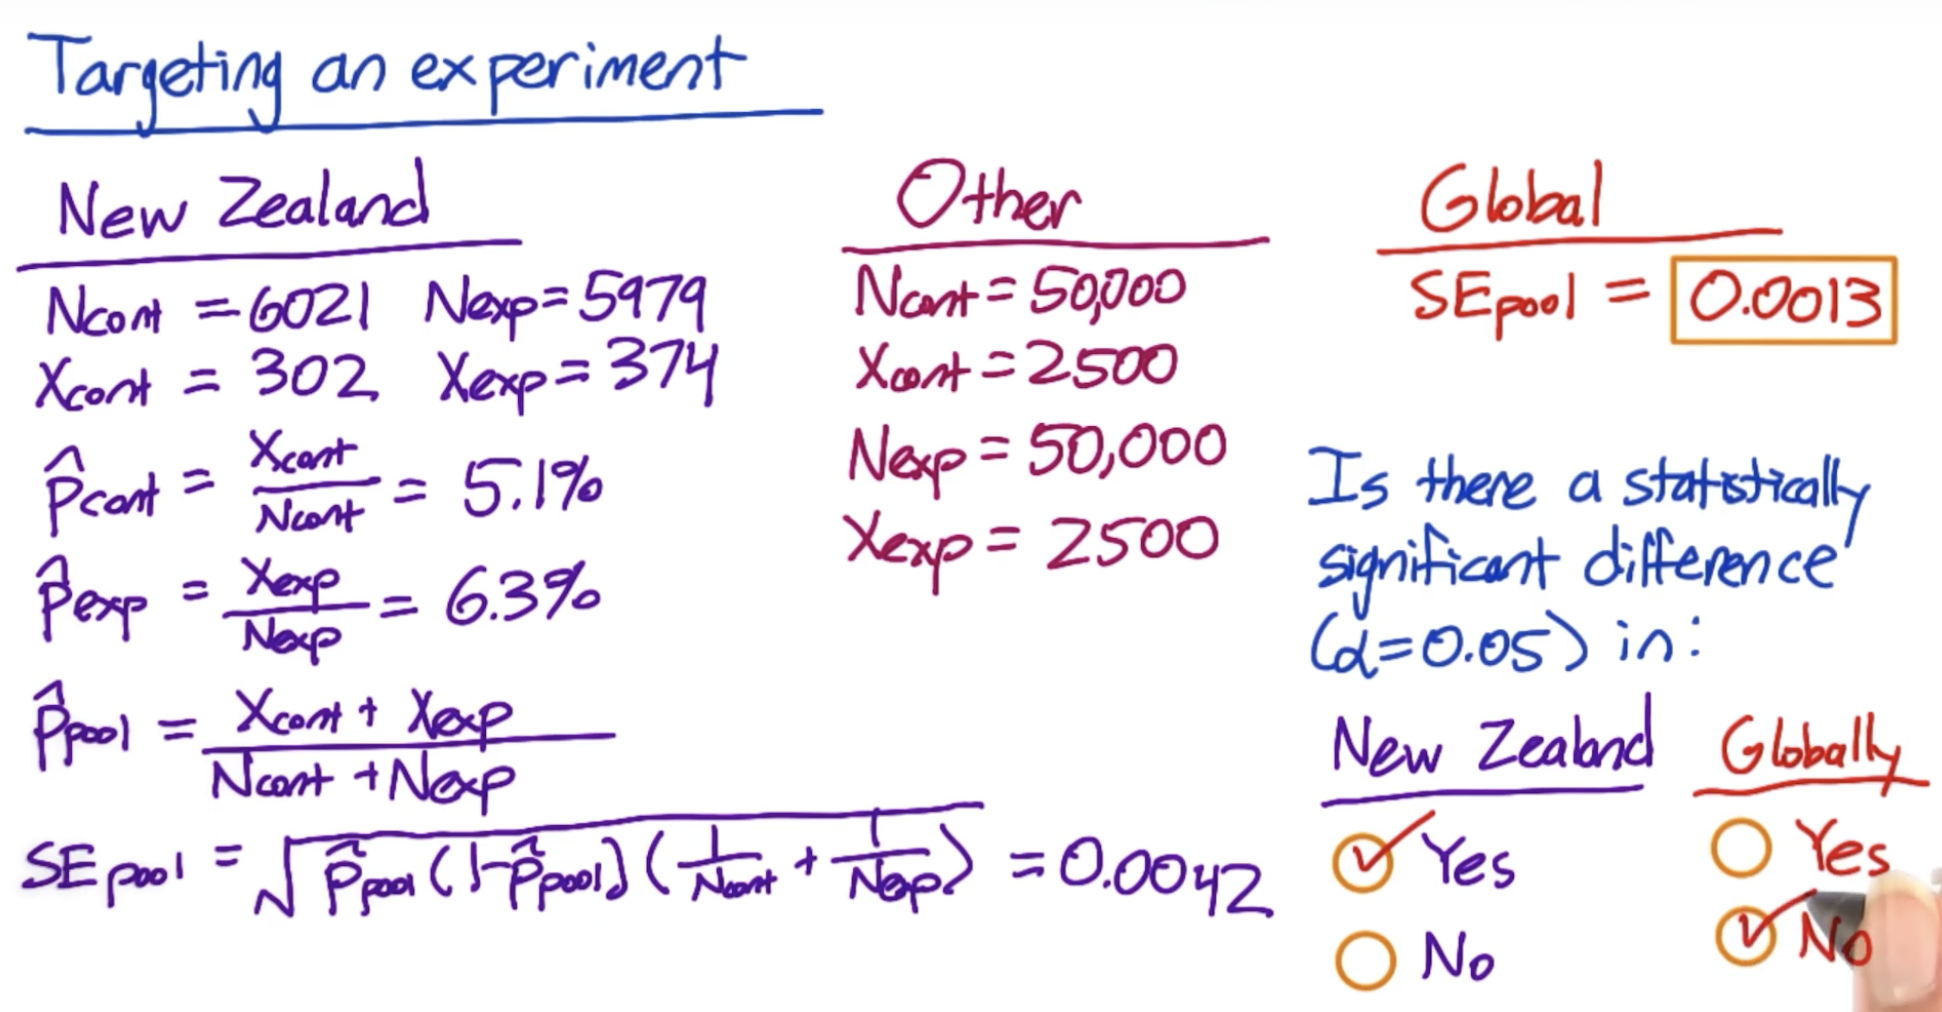 Targeting an experiment
New Zealand
Ncont = 6021 Nexp = 5979
Xcont = 302 Xexp = 374
p̂cont = Xcont / Ncont = 5.1%
p̂exp = Xexp / Nexp = 6.3%
p̂pool = Xcont + Xexp / Ncont + Nexp
SEpool = √p̂pool (1-p̂pool) (1/Ncont + 1/Nexp) = 0.0042
Other
Ncont = 50,000
Xcont = 2500
Nexp = 50,000
Xexp = 2500
Global
SEpool = 0.0013
Is there a statistically
significant difference
(α=0.05) in:
New Zealand
Yes
No
Globally
Yes
No